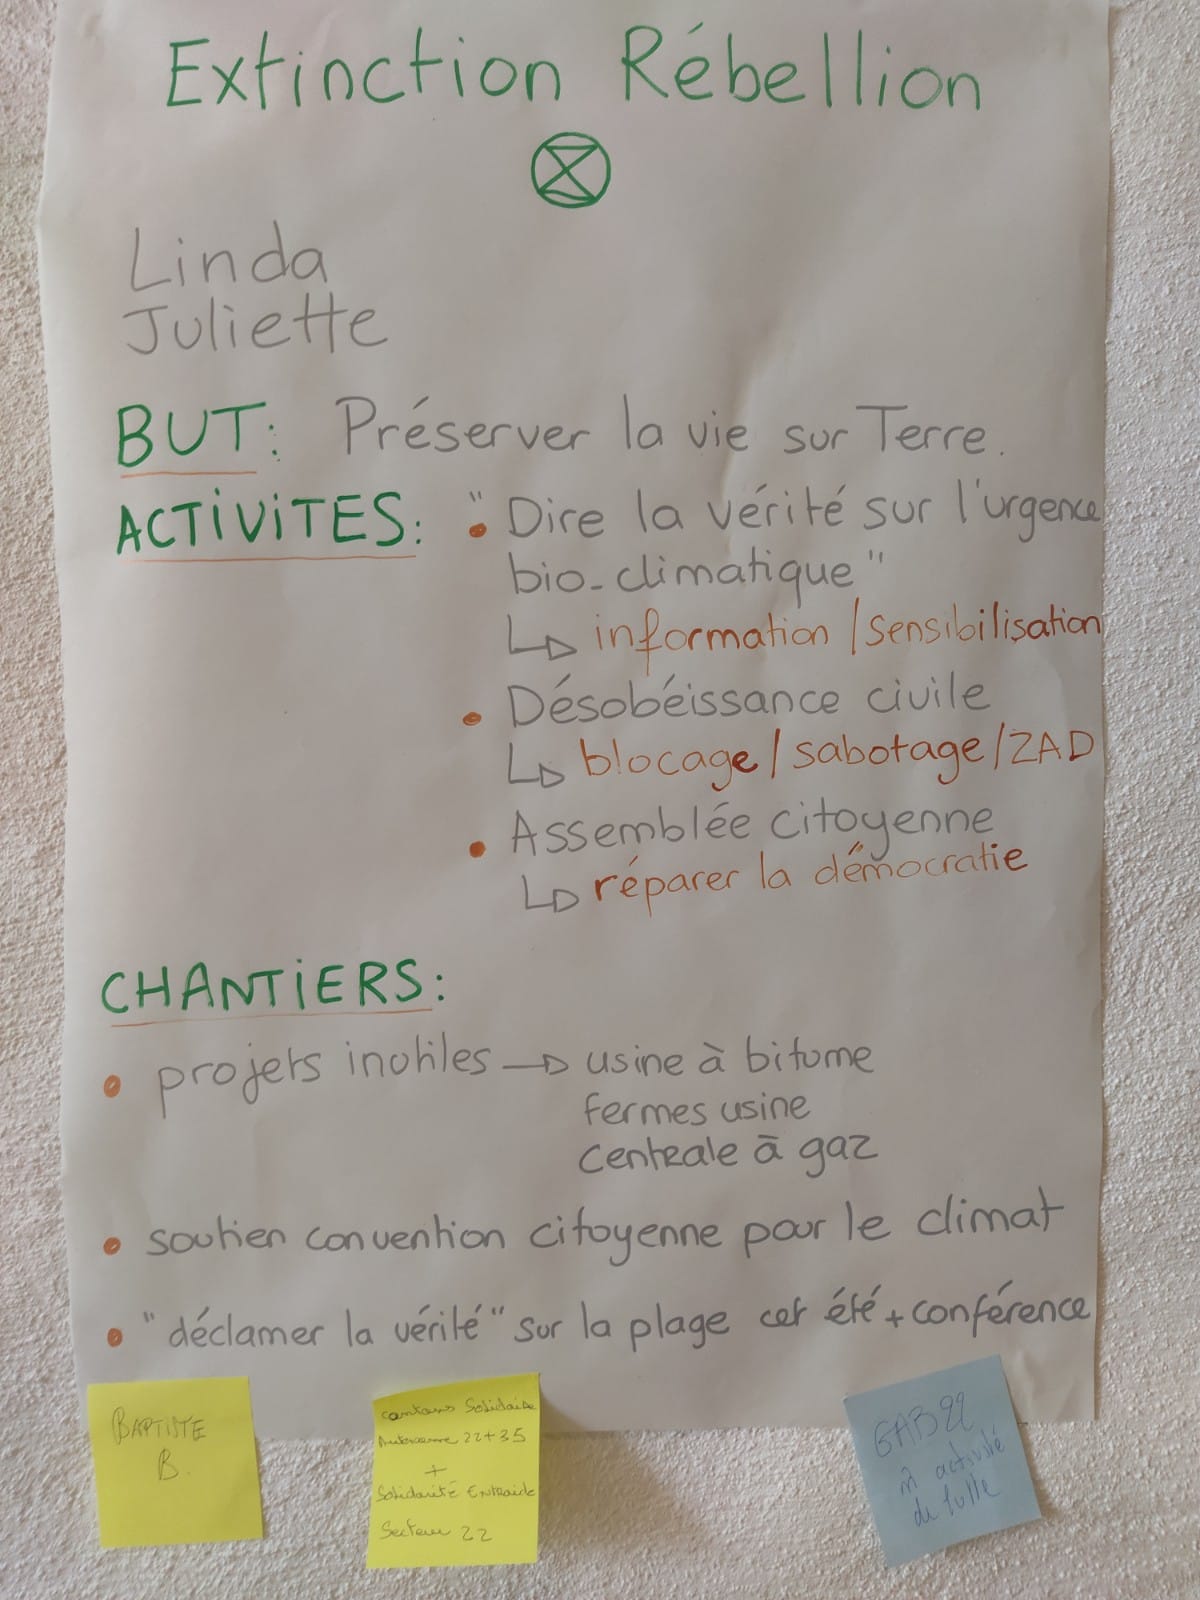 Extinction Rébellion
Linda
Juliette
BUT: Préserver la vie sur Terre.
ACTIVITES: " • Dire la vérité sur l'urgence
bio-climatique"
↳ information / sensibilisation
• Désobéissance civile
↳ blocage / sabotage / ZAD
• Assemblée citoyenne
↳ réparer la démocratie
CHANTIERS:
• projets inutiles → usine à bitume
fermes usine
Centrale à gaz
• soutien convention citoyenne pour le climat
• "déclamer la vérité" sur la plage cet été + conférence
BAPTISTE
B.
Solidaire
22+35
+
Solidarité Entraide
Secteur 22
GAB22
activité
de lutte